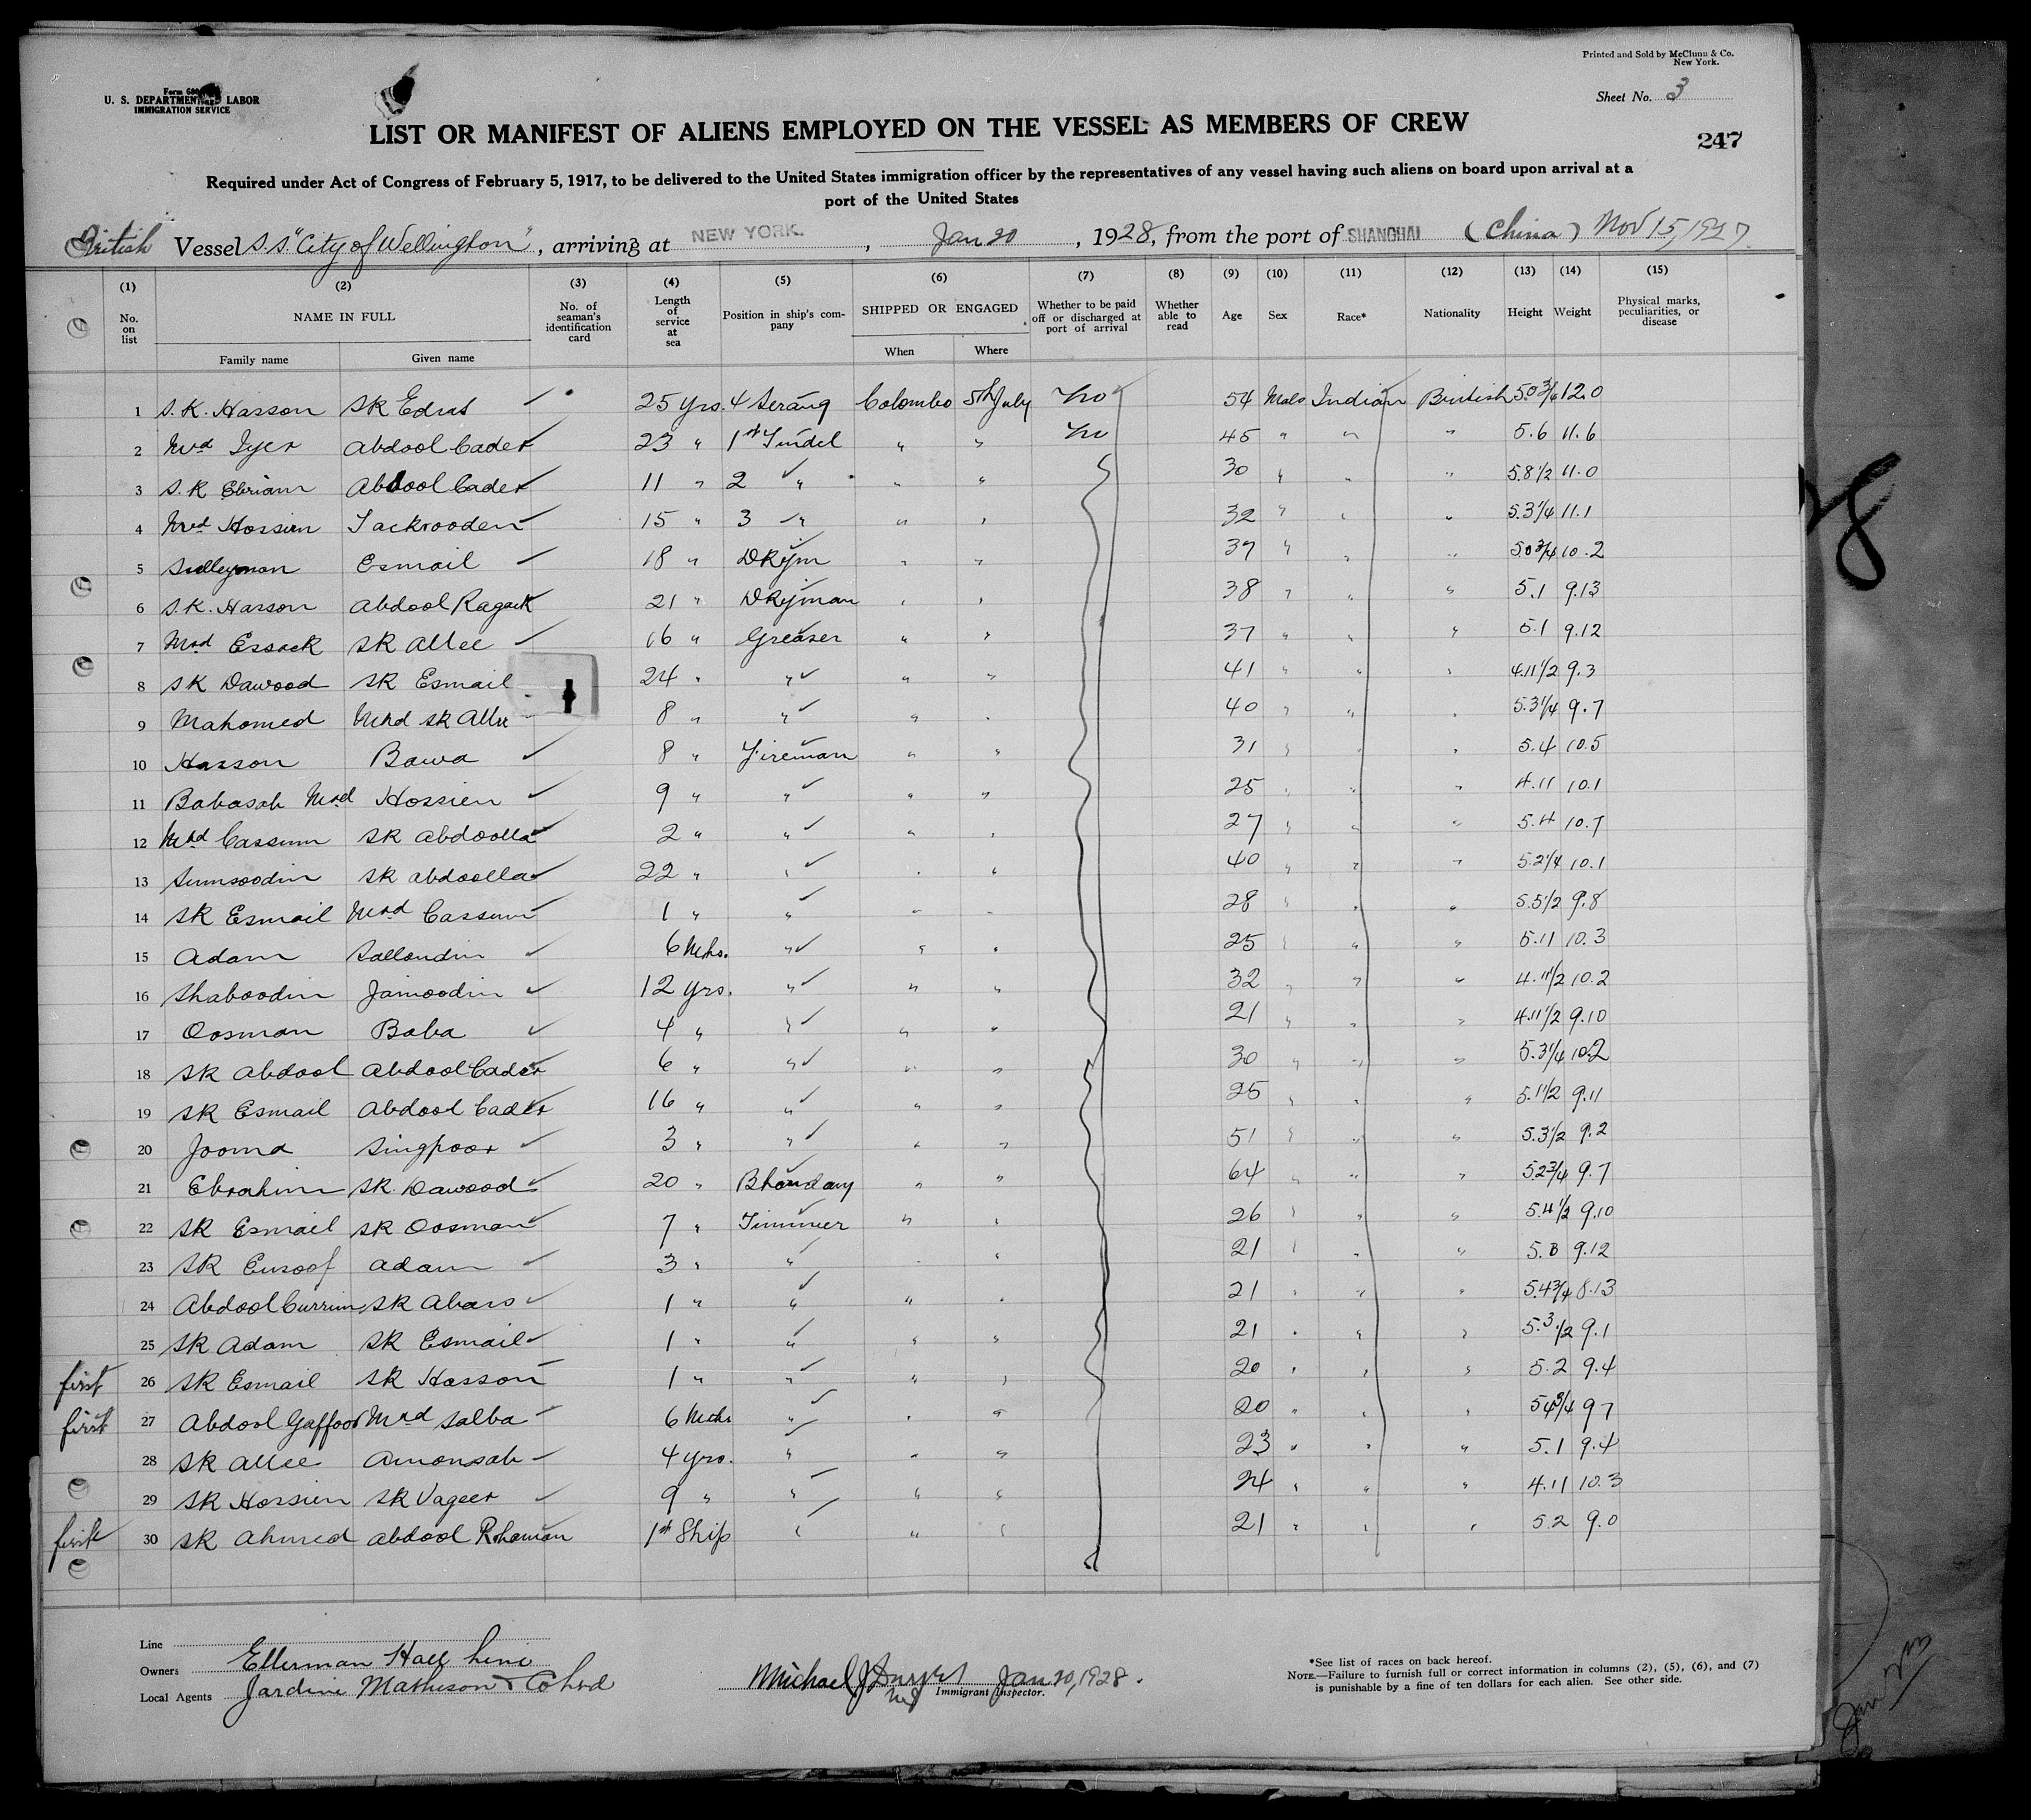 Printed and Sold by McClunn & Co.
New York.
Form 680
U. S. DEPARTMENT LABOR
IMMIGRATION SERVICE
Sheet No. 3
LIST OR MANIFEST OF ALIENS EMPLOYED ON THE VESSEL AS MEMBERS OF CREW
247
Required under Act of Congress of February 5, 1917, to be delivered to the United States immigration officer by the representatives of any vessel having such aliens on board upon arrival at a
port of the United States
British Vessel S.S. "City of Wellington", arriving at NEW YORK. , Jan 20 , 1928, from the port of SHANGHAI (China) Nov 15, 1927.
(1) (2) (3) (4) (5) (6) (7) (8) (9) (10) (11) (12) (13) (14) (15)
No. on list NAME IN FULL Family name Given name No. of seaman's identification card Length of service at sea Position in ship's company SHIPPED OR ENGAGED When Where Whether to be paid off or discharged at port of arrival Whether able to read Age Sex Race* Nationality Height Weight Physical marks, peculiarities, or disease
1 S.K. Hasson SK Edrus ✓ 25 yrs. 4 Serang Colombo 5th July No 54 Male Indian British 5.0 3/4 12.0
2 Mrd Iyer Abdool Cader ✓ 23 " 1st Tindel " " No 45 " " " 5.6 11.6
3 S.K Ebriam Abdool Cader ✓ 11 " 2 " " " 30 " " " 5.8 1/2 11.0
4 Mrd Hossien Tackrooden ✓ 15 " 3 " " " 32 " " " 5.3 1/4 11.1
5 Sulleyman Esmail ✓ 18 " DKym " " 37 " " " 5.0 3/4 10.2
6 S.K. Hasson Abdool Ragack 21 " DKyman " " 38 " " " 5.1 9.13
7 Mrd Essack SK Allee ✓ 16 " Greaser " " 37 " " " 5.1 9.12
8 SK Dawood SK Esmail 24 " " " " 41 " " " 4.11 1/2 9.3
9 Mahomed Mhd SK Allee 8 " " " " 40 " " " 5.3 1/4 9.7
10 Hasson Bawa ✓ 8 " Fireman " " 31 " " " 5.4 10.5
11 Babasah Mrd Hossien ✓ 9 " " " " 25 " " " 4.11 10.1
12 Mhd Cassum SK Abdoolla ✓ 2 " " " " 27 " " " 5.4 10.7
13 Sumsoodin SK Abdoolla ✓ 22 " " " " 40 " " " 5.2 1/4 10.1
14 SK Esmail Mrd Cassum ✓ 1 " " " " 28 " " " 5.5 1/2 9.8
15 Adam Salloudin ✓ 6 Mths. " " " 25 " " " 5.11 10.3
16 Shaboodin Jainoodin ✓ 12 yrs. " " " 32 " " " 4.11 1/2 10.2
17 Oosman Baba ✓ 4 " " " " 21 " " " 4.11 1/2 9.10
18 SK Abdool Abdool Cader 6 " " " " 30 " " " 5.3 1/4 10.2
19 SK Esmail Abdool Cader 16 " " " " 25 " " " 5.1 1/2 9.11
20 Jooma Singpoor ✓ 3 " " " " 51 " " " 5.3 1/2 9.2
21 Ebrahim SK. Dawood ✓ 20 " Bhandary " " 64 " " " 5.2 3/4 9.7
22 SK Esmail SK Oosman ✓ 7 " Timmer " " 26 " " " 5.4 1/2 9.10
23 SK Eusoof Adam ✓ 3 " " " 21 " " " 5.8 9.12
24 Abdool Currim SK Abars ✓ 1 " " " " 21 " " " 5.4 3/4 8.13
25 SK Adam SK Esmail ✓ 1 " " " " 21 " " " 5.3 1/2 9.1
first 26 SK Esmail SK Hasson 1 " " " " 20 " " " 5.2 9.4
first 27 Abdool Gaffoor Mrd Salba 6 Mths " " " 20 " " " 5 4 3/4 9 7
28 SK Allee Amonsah 4 yrs. " " " 23 " " " 5.1 9.4
29 SK Hossien SK Vageer ✓ 9 " " " " 24 " " " 4.11 10.3
first 30 SK Ahmed Abdool Rhaman 1st Ship " " " 21 " " " 5.2 9.0
Line
Owners Ellerman Hall Line
Local Agents Jardine Matheson & Co Ltd
Michael J Jan 20, 1928.
Immigrant Inspector.
*See list of races on back hereof.
NOTE.—Failure to furnish full or correct information in columns (2), (5), (6), and (7)
is punishable by a fine of ten dollars for each alien. See other side.